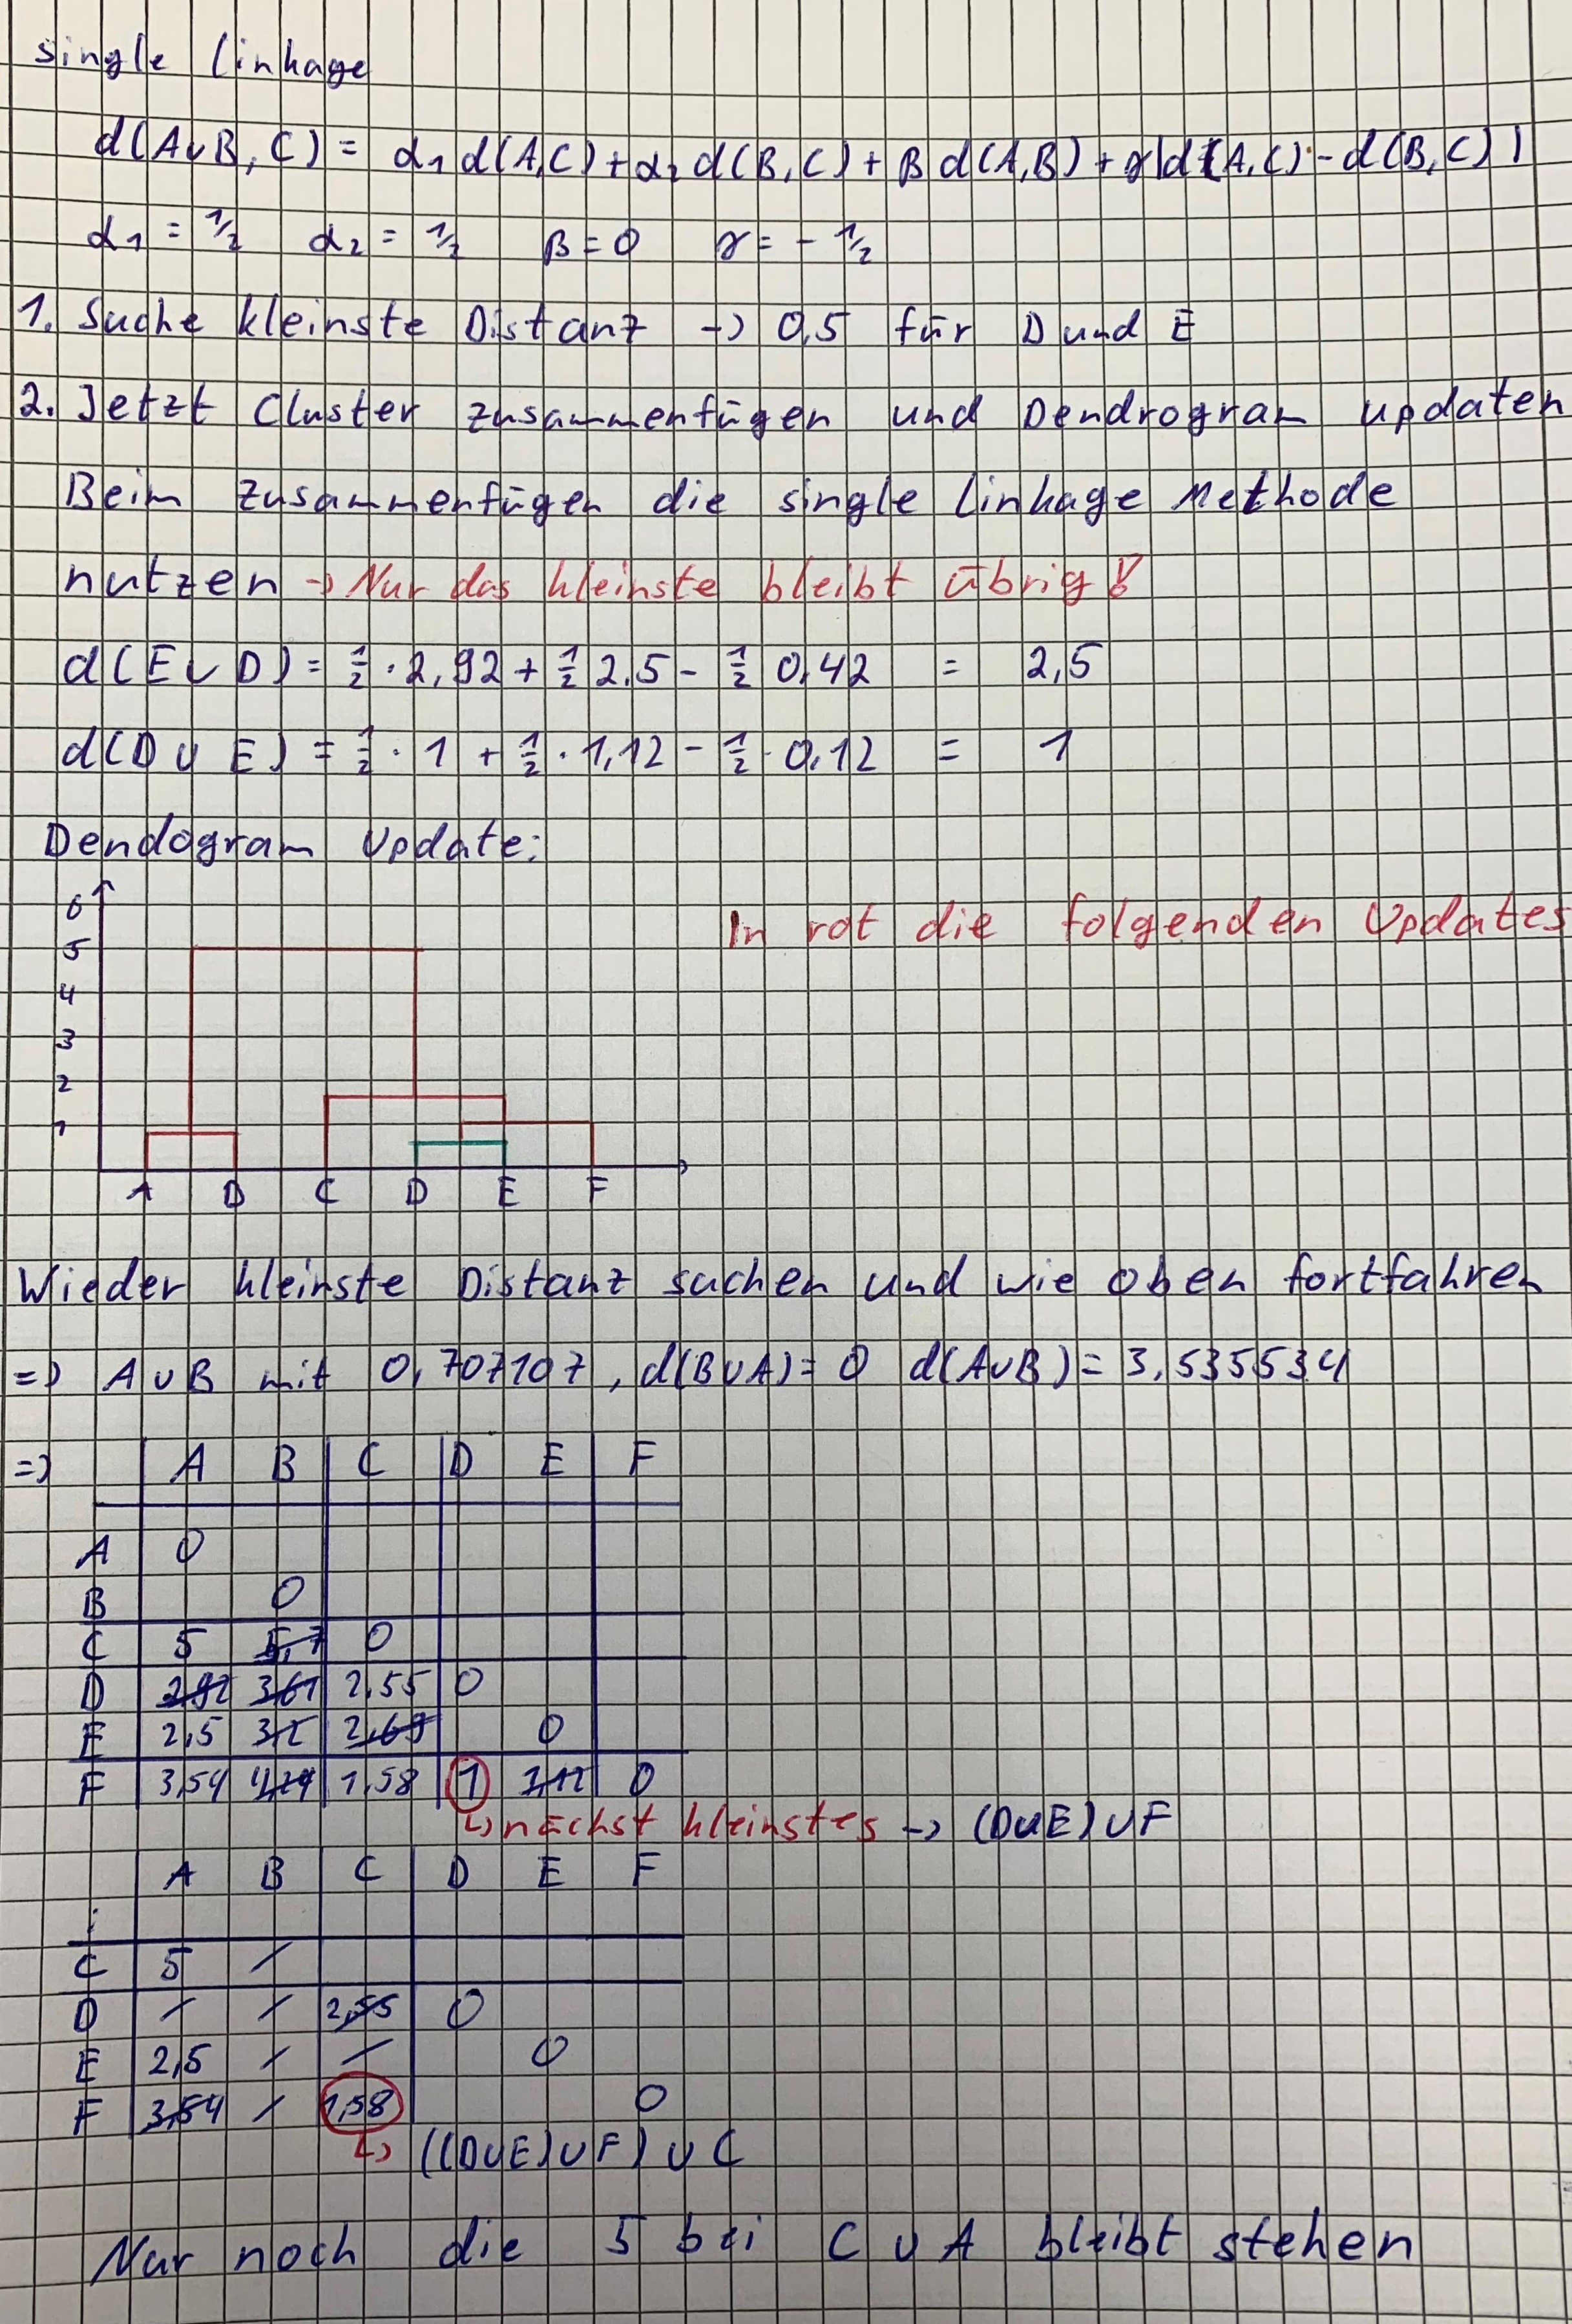 single linkage
d(A∪B, C) = α1 d(A,C) + α2 d(B,C) + β d(A,B) + γ|d(A,C) - d(B,C)|
α1 = 1/2 α2 = 1/2 β = 0 γ = - 1/2
1. Suche kleinste Distanz → 0,5 für D und E
2. Jetzt Cluster zusammenfügen und Dendrogram updaten
Beim zusammenfügen die single linkage Methode
nutzen → Nur das kleinste bleibt übrig!
d(E∪D) = 1/2 · 2,92 + 1/2 2,5 - 1/2 0,42 = 2,5
d(D∪E) = 1/2 · 1 + 1/2 · 1,12 - 1/2 · 0,12 = 1
Dendogram Update:
In rot die folgenden Updates
6
5
4
3
2
1
A B C D E F
Wieder kleinste Distanz suchen und wie oben fortfahren
=> A∪B mit 0,707107, d(B∪A) = 0 d(A∪B) = 3,535534
=> A B C D E F
A 0
B 0
C 5 5,7 0
D 2,92 3,61 2,55 0
E 2,5 3,2 2,69 0
F 3,54 4,24 1,58 1 1,12 0
↳ nächst kleinstes → (D∪E)∪F
A B C D E F
:
C 5 /
D / / 2,55 0
E 2,5 / / 0
F 3,54 / 1,58 0
↳ ((D∪E)∪F)∪C
Nur noch die 5 bei C∪A bleibt stehen